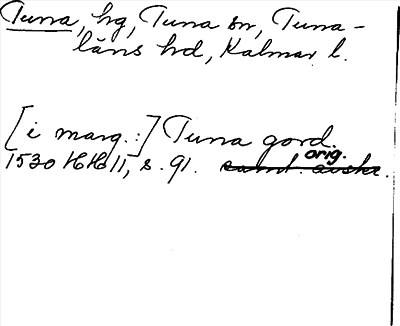 Tuna, hg, Tuna sn, Tuna-
läns hd, Kalmar l.
[i marg.:] Tuna gord.
1530 HH 11, s. 91. samt. avskr. orig.